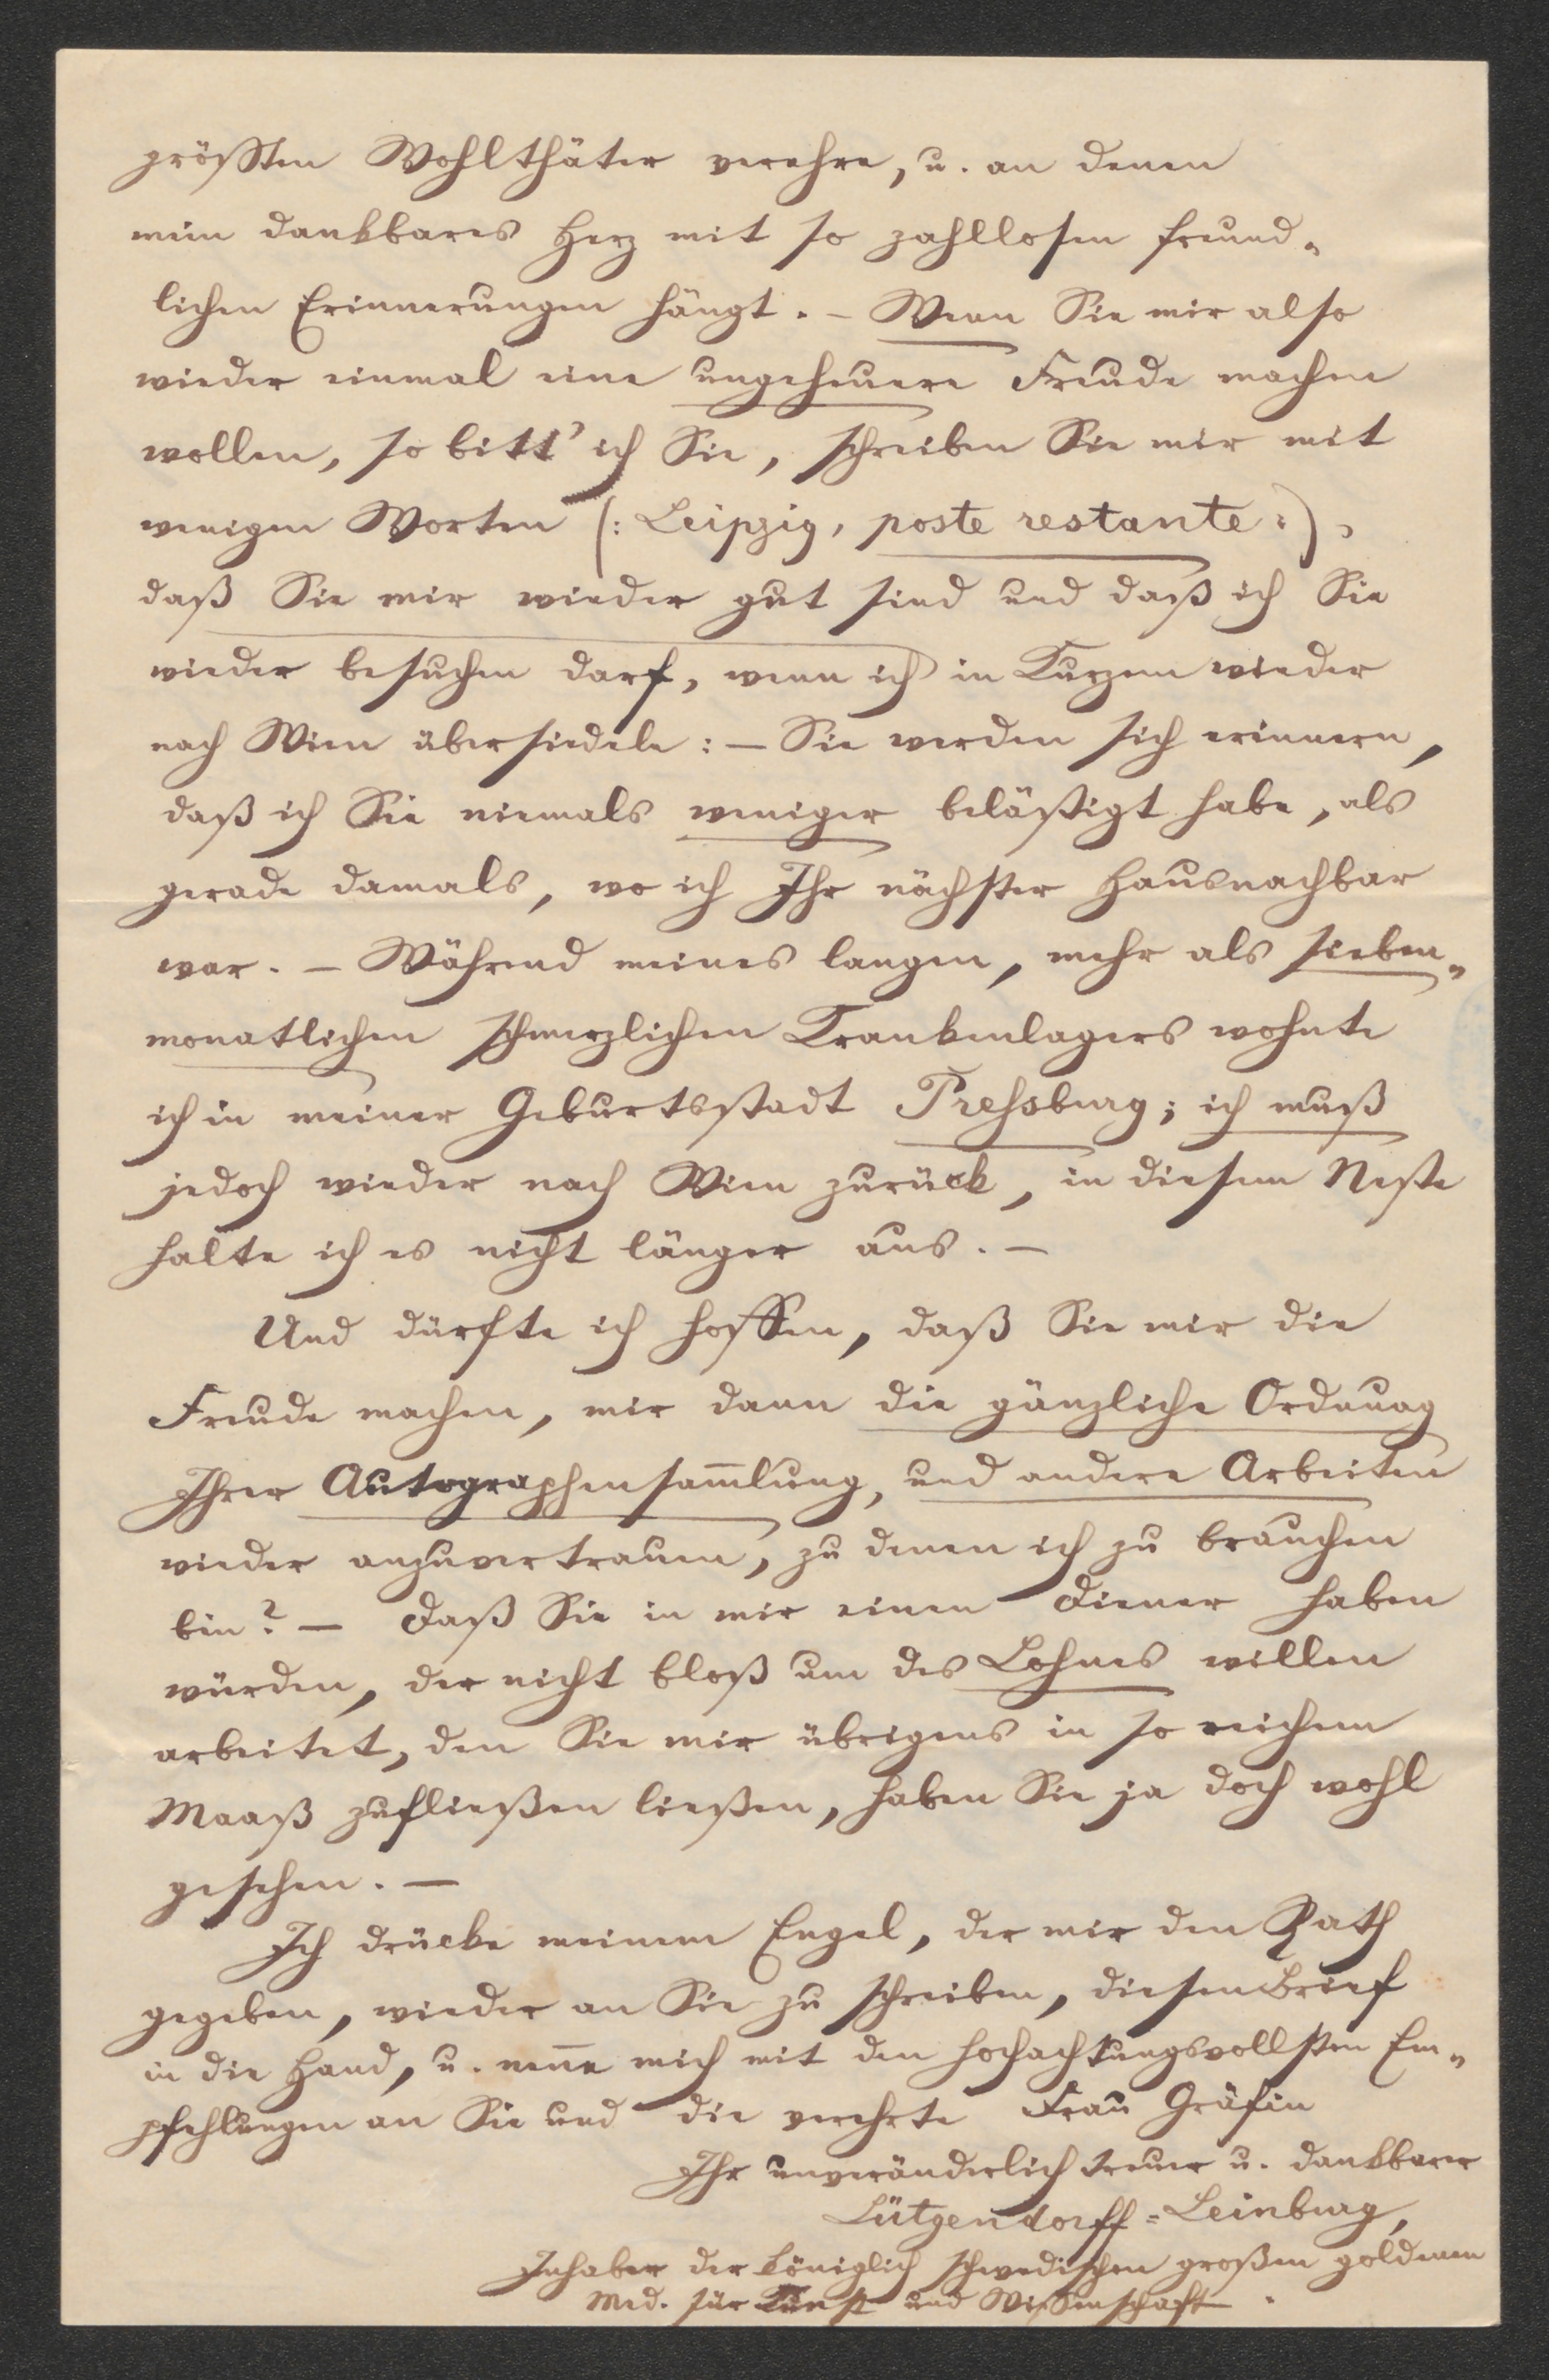 größten Wohlthäter verehre, u. an denen
mein dankbares Herz mit so zahllosen freund„
lichen Erinnerungen hängt. – Wenn Sie mir also
wieder einmal eine ungeheuere Freude machen
wollen, so bitt' ich Sie, schreiben Sie mir mit
wenigen Worten (: Leipzig, poste restante :),
daß Sie mir wieder gut sind und daß ich Sie
wieder besuchen darf, wenn ich in Kurzem wieder
nach Wien übersiedele: – Sie werden sich erinnern,
daß ich Sie niemals weniger belästigt habe, als
gerade damals, wo ich Ihr nächster Hausnachbar
war. – Während meines langen, mehr als sieben„
monatlichen schmerzlichen Krankenlagers wohnte
ich in meiner Geburtsstadt Pressburg; ich muß
jedoch wieder nach Wien zurück, in diesem Neste
halte ich es nicht länger aus. –
Und dürfte ich hoffen, daß Sie mir die
Freude machen, mir dann die gänzliche Ordnung
Ihrer Autographensam̄lung, und andere Arbeiten
wieder anzuvertrauen, zu denen ich zu brauchen
bin? – Daß Sie in mir einen Diener haben
würden, der nicht bloß um des Lohnes willen
arbeitet, den Sie mir übrigens in so reichem
Maaß zufließen ließen, haben Sie ja doch wohl
gesehen. –
Ich drücke meinem Engel, der mir den Rath
gegeben, wieder an Sie zu schreiben, diesen Brief
in die Hand, u. nen̄e mich mit den hochachtungsvollsten Em„
pfehlungen an Sie und die verehrte Frau Gräfin
Ihr unveränderlich treuer u. dankbarer
Lütgendorff=Leinburg,
Inhaber der königlich schwedischen großen goldenen
Med. für Kunst und Wissenschaft.